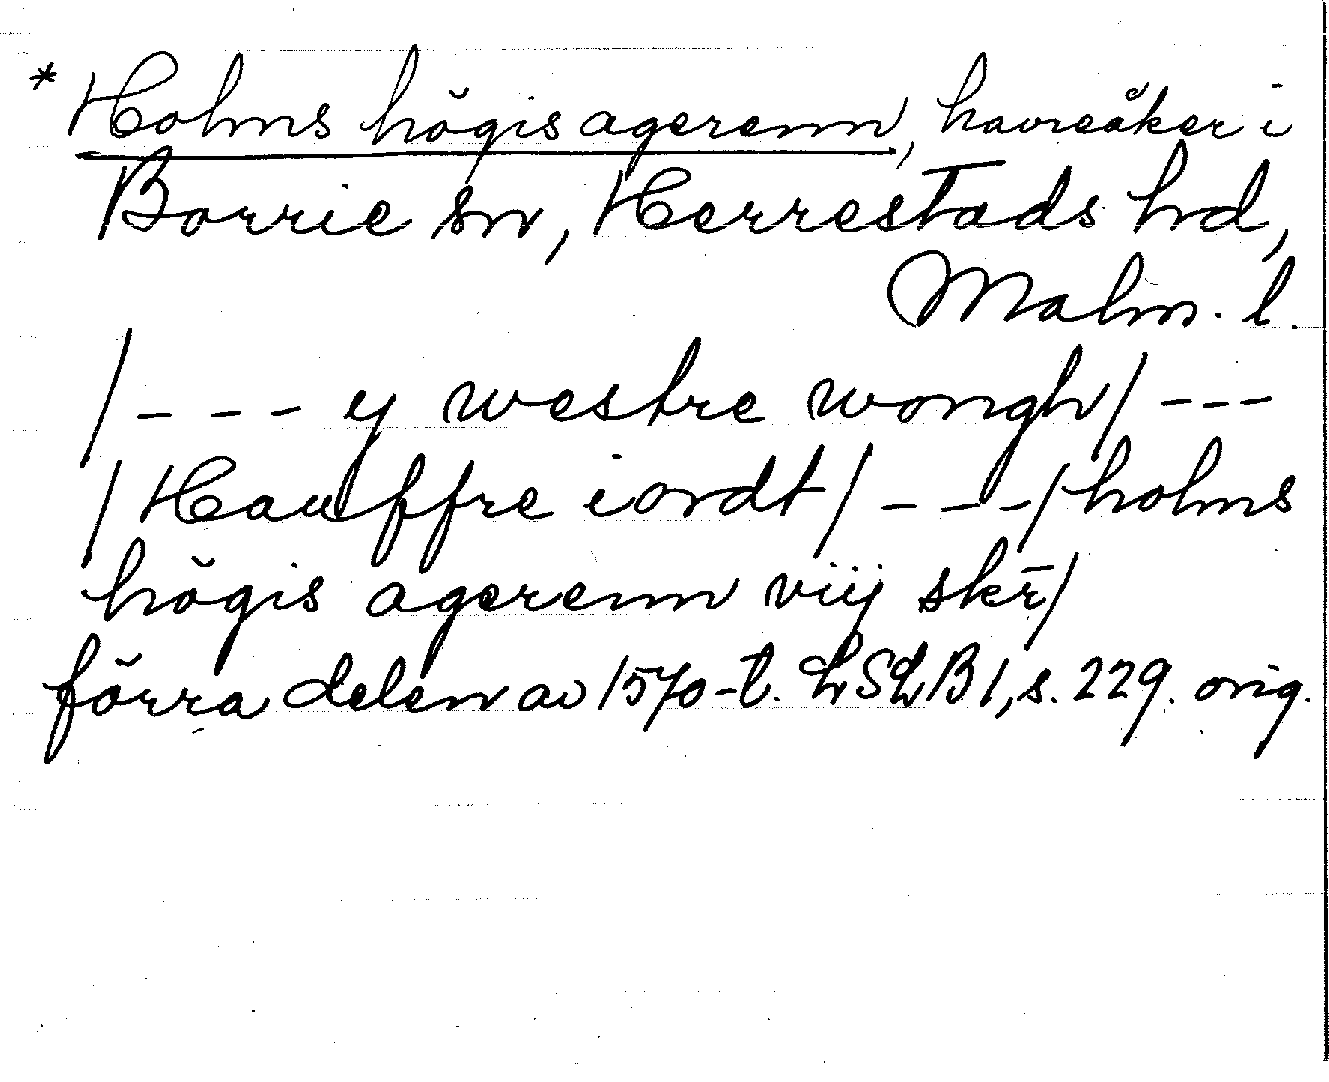 * Holms högis agerenn, havreåker i
Borrie sn, Herrestads hd,
Malm. l.
/- - - y westre wongh/ - - -
/Hauffre iordt/ - - -/holms
högis agerenn viij skr̄/
förra delen av 1570-t. LSLB1, s. 229. orig.